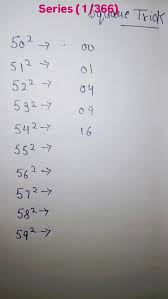 Series (1/366)
Square Trick
50² → 00
51² → 01
52² → 04
53² → 09
54² → 16
55² →
56² →
57² →
58² →
59² →